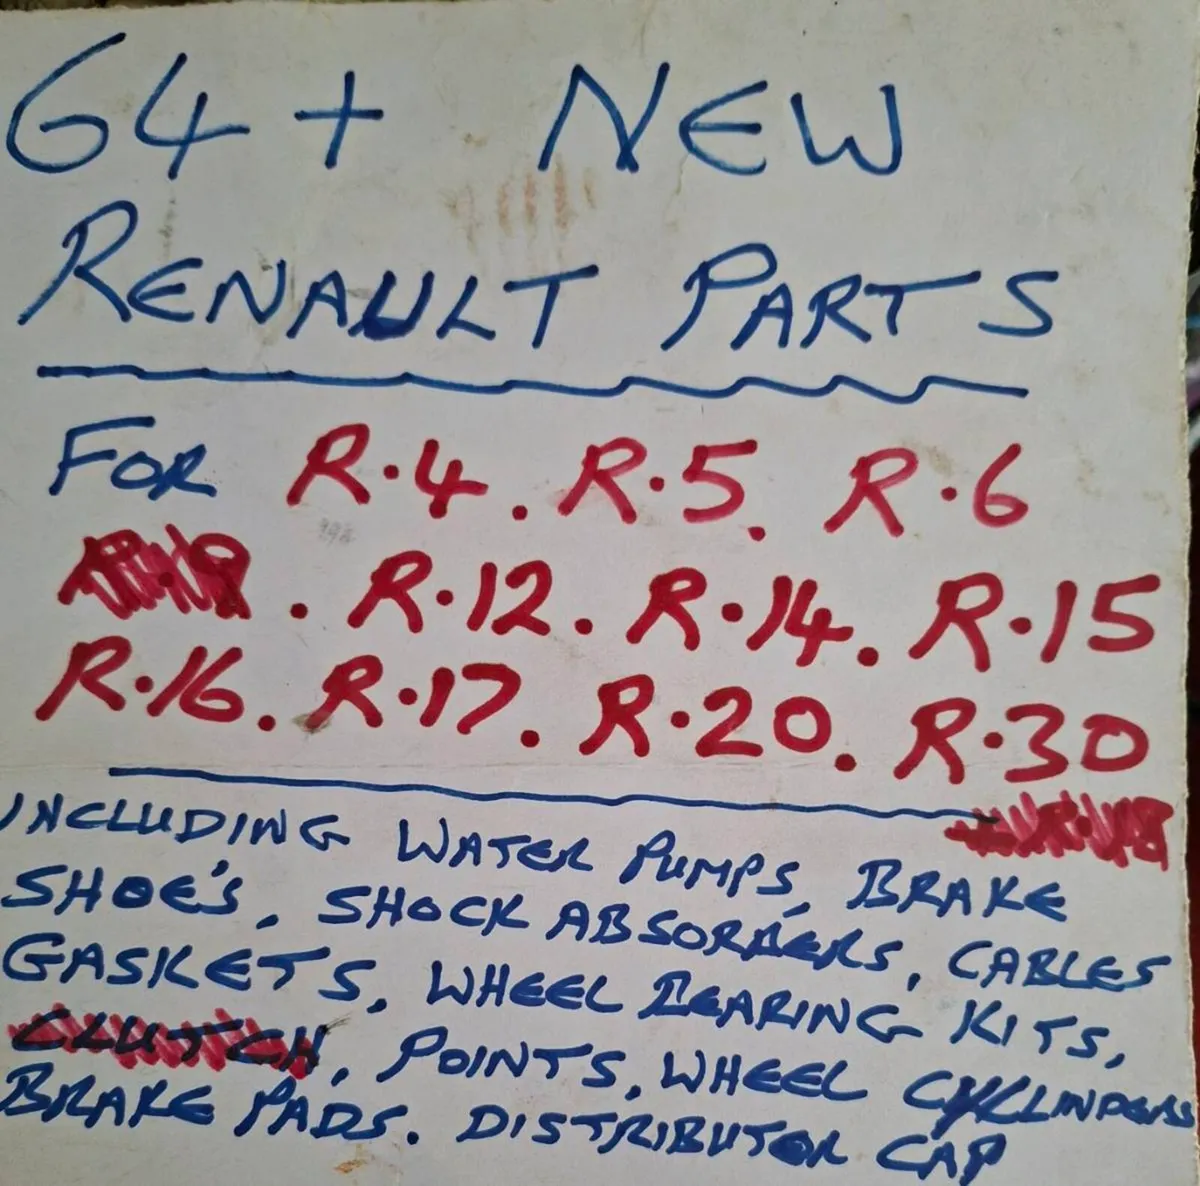 64+ NEW
RENAULT PARTS
FOR R.4. R.5. R.6
. R.12. R.14. R.15
R.16. R.17. R.20. R.30
INCLUDING WATER PUMPS, BRAKE
SHOE'S, SHOCK ABSORBERS, CABLES
GASKETS, WHEEL BEARING KITS,
CLUTCH, POINTS, WHEEL CYLINDERS
BRAKE PADS. DISTRIBUTOR CAP